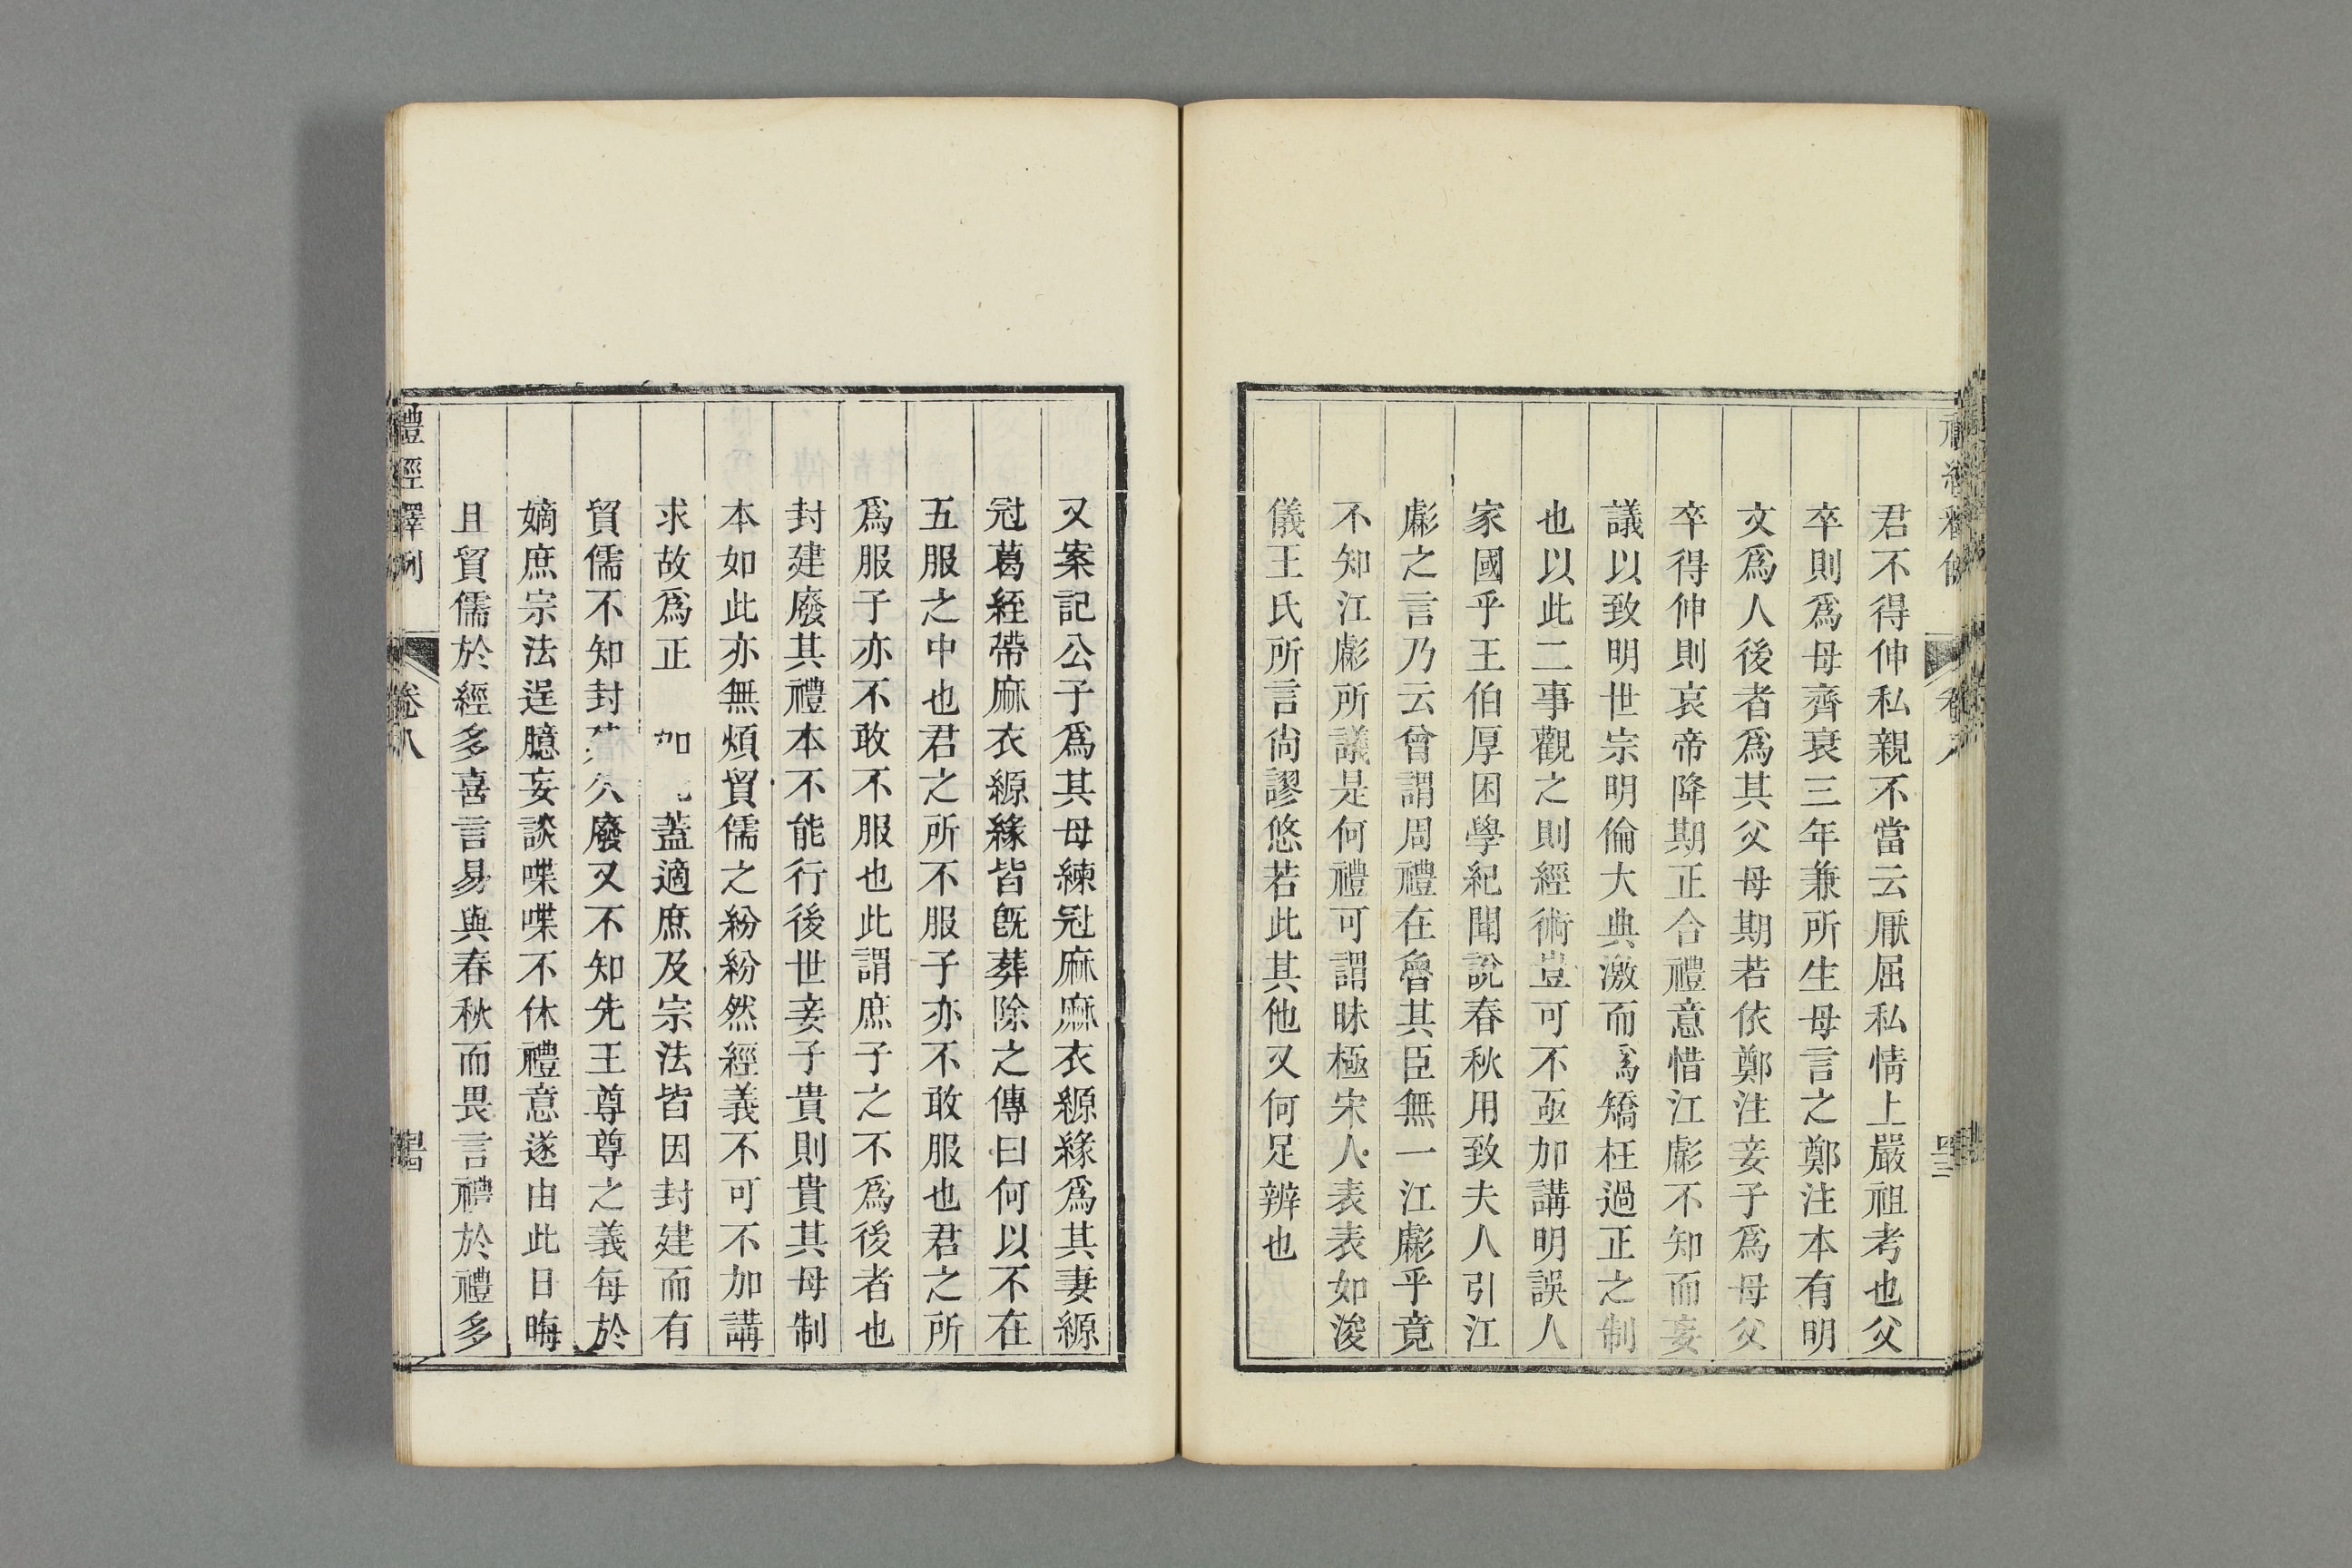 君不得伸私親不當云厭屈私情上嚴祖考也父
卒則爲母齊衰三年兼所生母言之鄭注本有明
文爲人後者爲其父母期若依鄭注妾子爲母父
卒得伸則哀帝降期正合禮意惜江彪不知而妄
議以致明世宗明倫大典激而爲矯枉過正之制
也以此二事觀之則經術豈可不亟加講明誤人
家國乎王伯厚困學紀聞說春秋用致夫人引江
彪之言乃云曾謂周禮在魯其臣無一江彪乎竟
不知江彪所議是何禮可謂昧極宋人表表如浚
儀王氏所言尙謬悠若此其他又何足辨也
又案記公子爲其母練冠麻麻衣縓緣爲其妻縓
冠葛絰帶麻衣縓緣皆旣葬除之傳曰何以不在
五服之中也君之所不服子亦不敢服也君之所
爲服子亦不敢不服也此謂庶子之不爲後者也
封建廢其禮本不能行後世妾子貴則貴其母制
本如此亦無煩貿儒之紛紛然經義不可不加講
求故爲正 如 蓋適庶及宗法皆因封建而有
貿儒不知封 久廢又不知先王尊尊之義每於
嫡庶宗法逞臆妄談喋喋不休禮意遂由此日晦
且貿儒於經多喜言易與春秋而畏言禮於禮多
禮經釋例
卷八